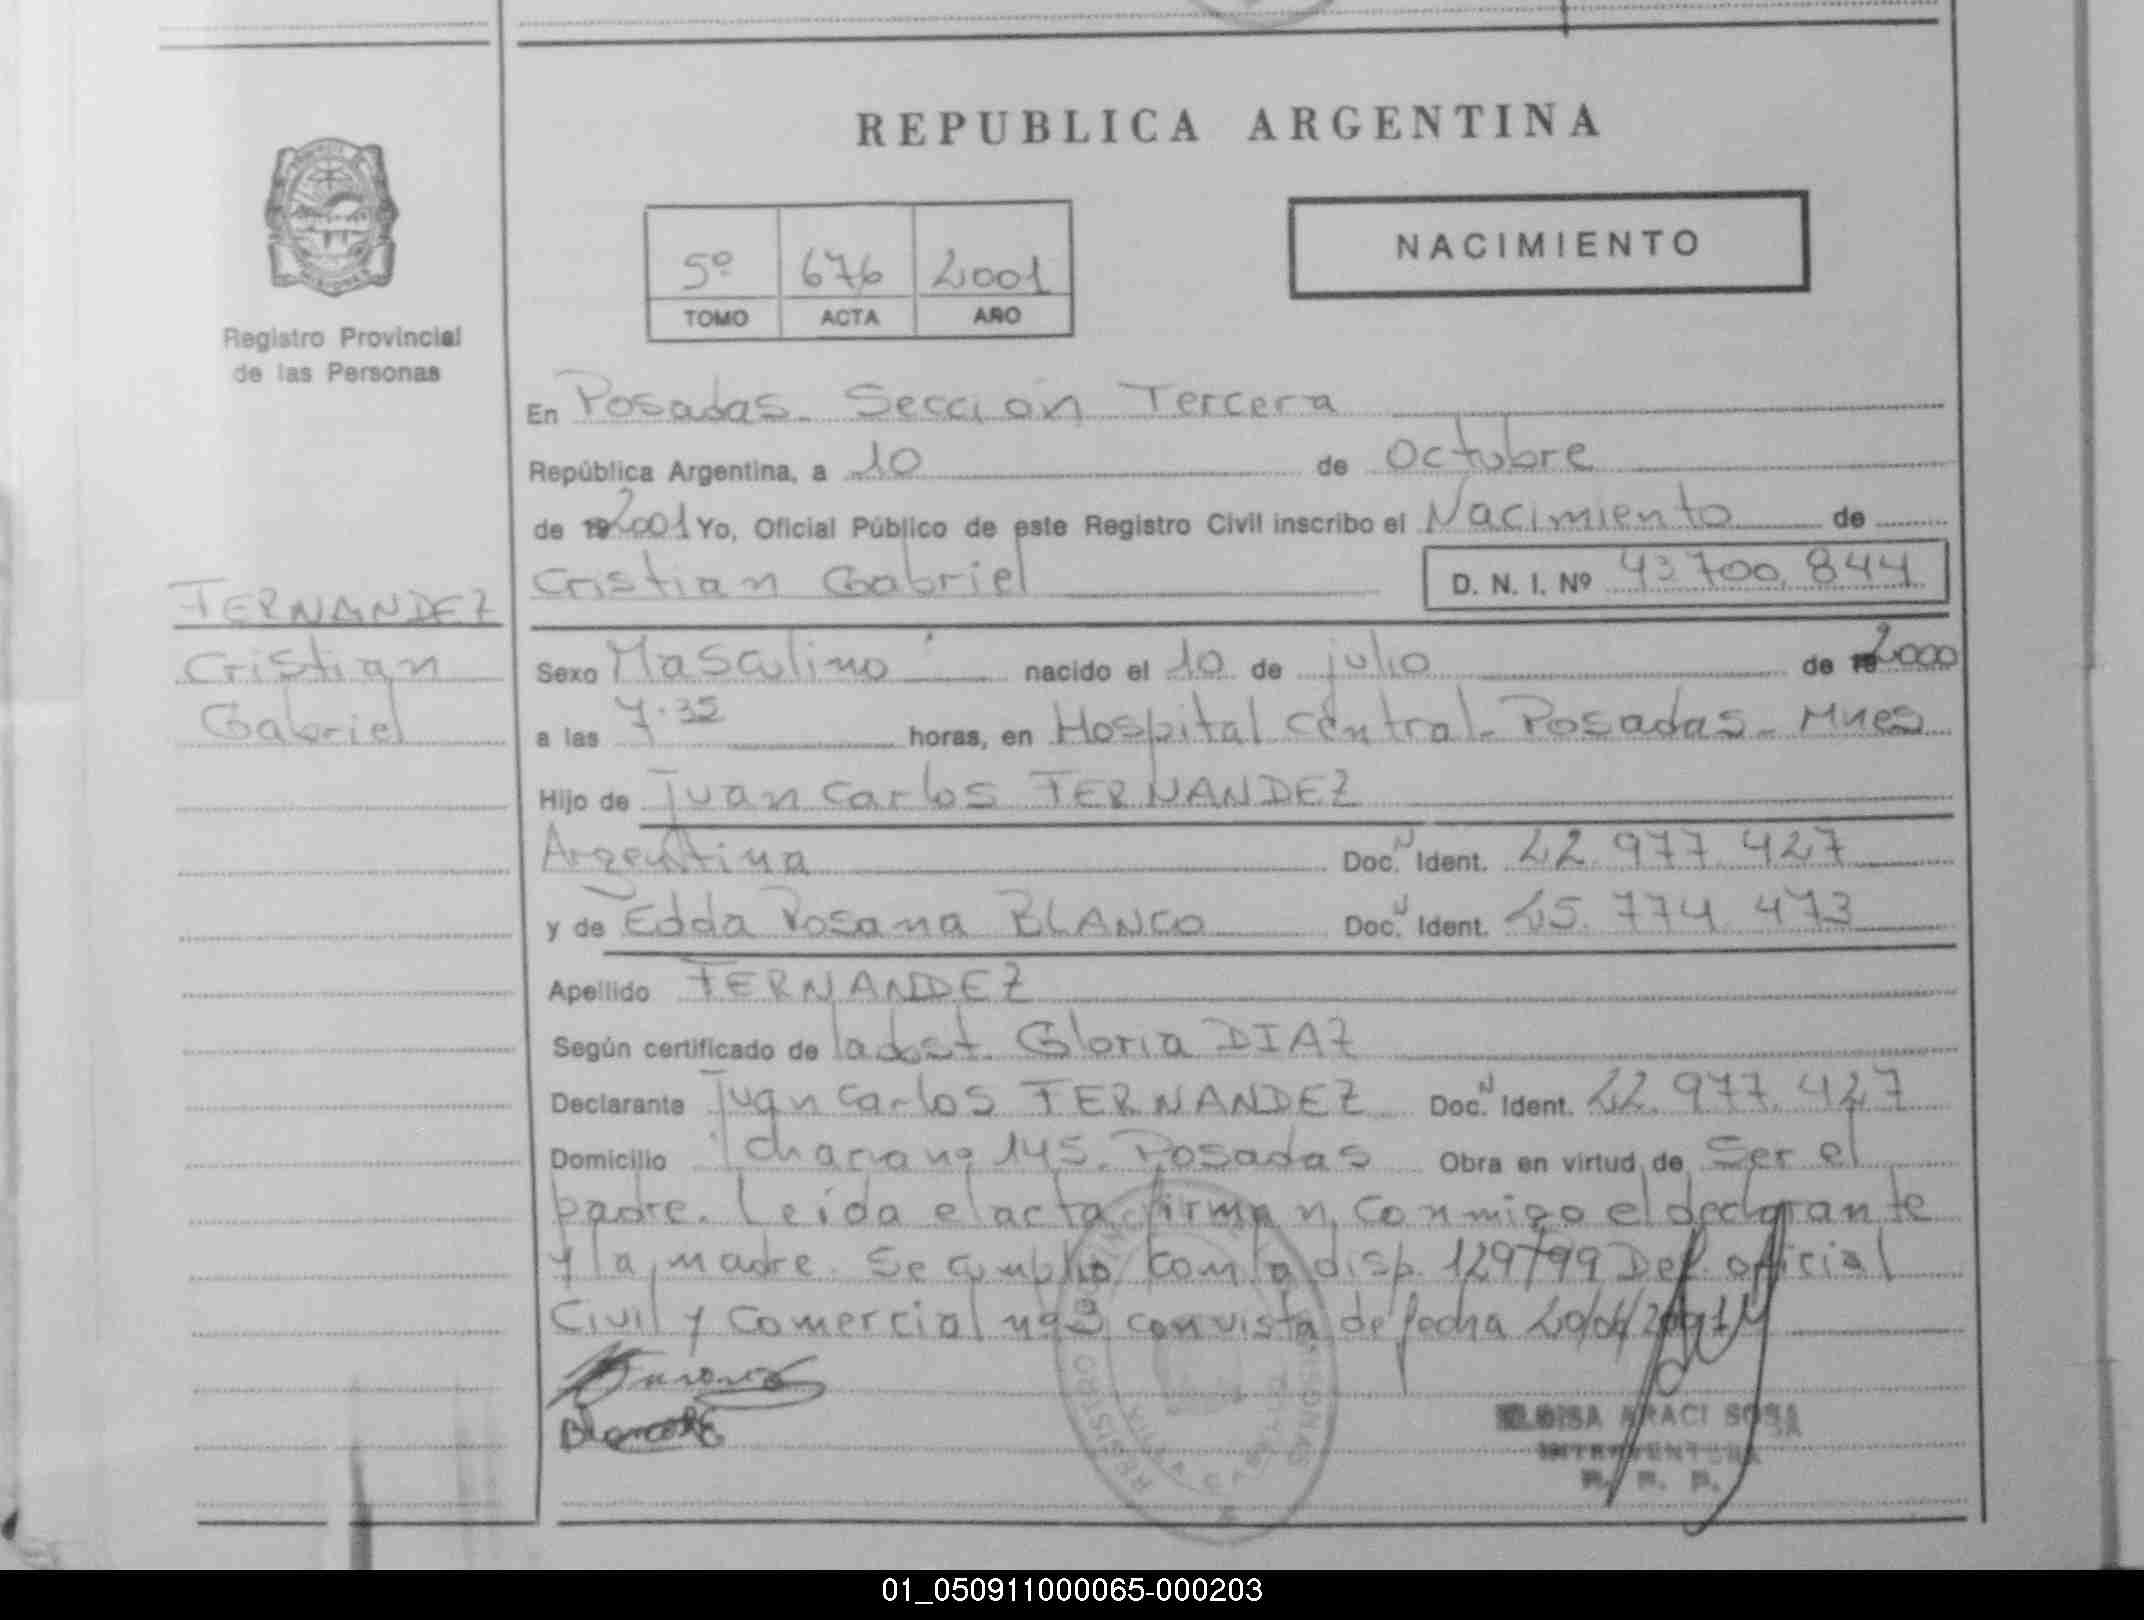 REPUBLICA ARGENTINA
NACIMIENTO
5º 676 2001
TOMO ACTA AÑO
Registro Provincial
de las Personas
FERNANDEZ
Cristian
Gabriel
En Posadas. Sección Tercera
República Argentina, a 10 de Octubre
de 2001 Yo, Oficial Público de este Registro Civil inscribo el Nacimiento de
Cristian Gabriel D. N. I. Nº 43.700.844
Sexo Masculino nacido el 10 de julio de 2000
a las 7.35 horas, en Hospital Central. Posadas. Mnes
Hijo de Juan Carlos FERNANDEZ
Argentina Doc. N Ident. 22.977.427
y de Edda Rosana BLANCO Doc. N Ident. 25.774.473
Apellido FERNANDEZ
Según certificado de la obst. Gloria DIAZ
Declarante Juan Carlos FERNANDEZ Doc. N Ident. 22.977.427
Domicilio 145. Posadas Obra en virtud de Ser el
padre. Leída el acta firman conmigo el declarante
y la madre. Se cumplió con la disp. 129/99 Def. oficial
Civil y Comercial nº3 con vista de fecha
ELOISA ARACI SOSA
INTERVENTORA
R. P. P.
01_050911000065-000203